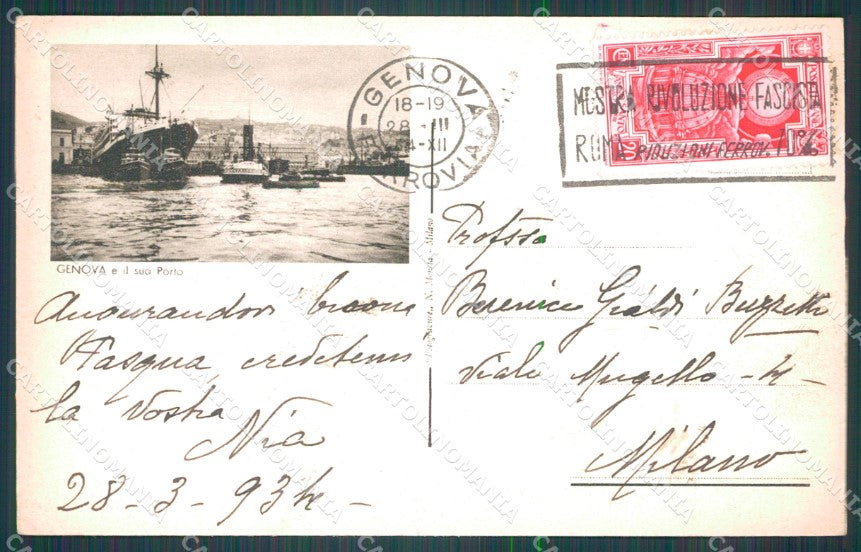 GENOVA
18-19
28 III
34-XII
FERROVIA
MOSTRA RIVOLUZIONE FASCISTA
ROMA RIDUZIONI FERROV. 70%
GENOVA e il suo Porto
Augurandovi buona
Pasqua credetemi
la Vostra
Nia
28-3-934-
Profssa
Berenice Gialdi Buzzetti
Viale Mugello -4-
Milano
CARTOLINOMANIA